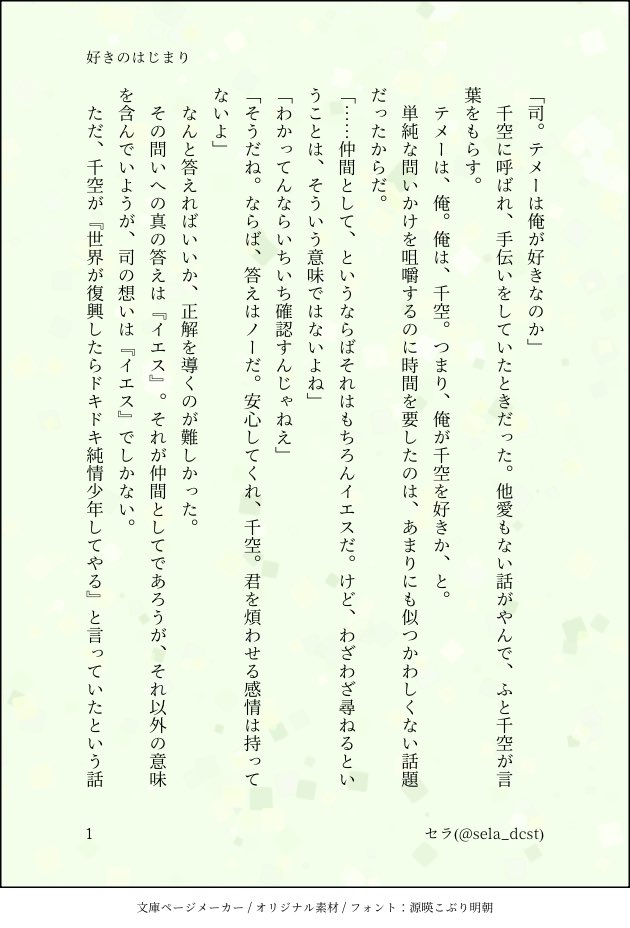 好きのはじまり
「司。テメーは俺が好きなのか」
　千空に呼ばれ、手伝いをしていたときだった。他愛もない話がやんで、ふと千空が言
葉をもらす。
　テメーは、俺。俺は、千空。つまり、俺が千空を好きか、と。
　単純な問いかけを咀嚼するのに時間を要したのは、あまりにも似つかわしくない話題
だったからだ。
「……仲間として、というならばそれはもちろんイエスだ。けど、わざわざ尋ねるとい
うことは、そういう意味ではないよね」
「わかってんならいちいち確認すんじゃねえ」
「そうだね。ならば、答えはノーだ。安心してくれ、千空。君を煩わせる感情は持って
ないよ」
　なんと答えればいいか、正解を導くのが難しかった。
　その問いへの真の答えは『イエス』。それが仲間としてであろうが、それ以外の意味
を含んでいようが、司の想いは『イエス』でしかない。
　ただ、千空が『世界が復興したらドキドキ純情少年してやる』と言っていたという話
1
セラ(@sela_dcst)
文庫ページメーカー / オリジナル素材 / フォント：源暎こぶり明朝